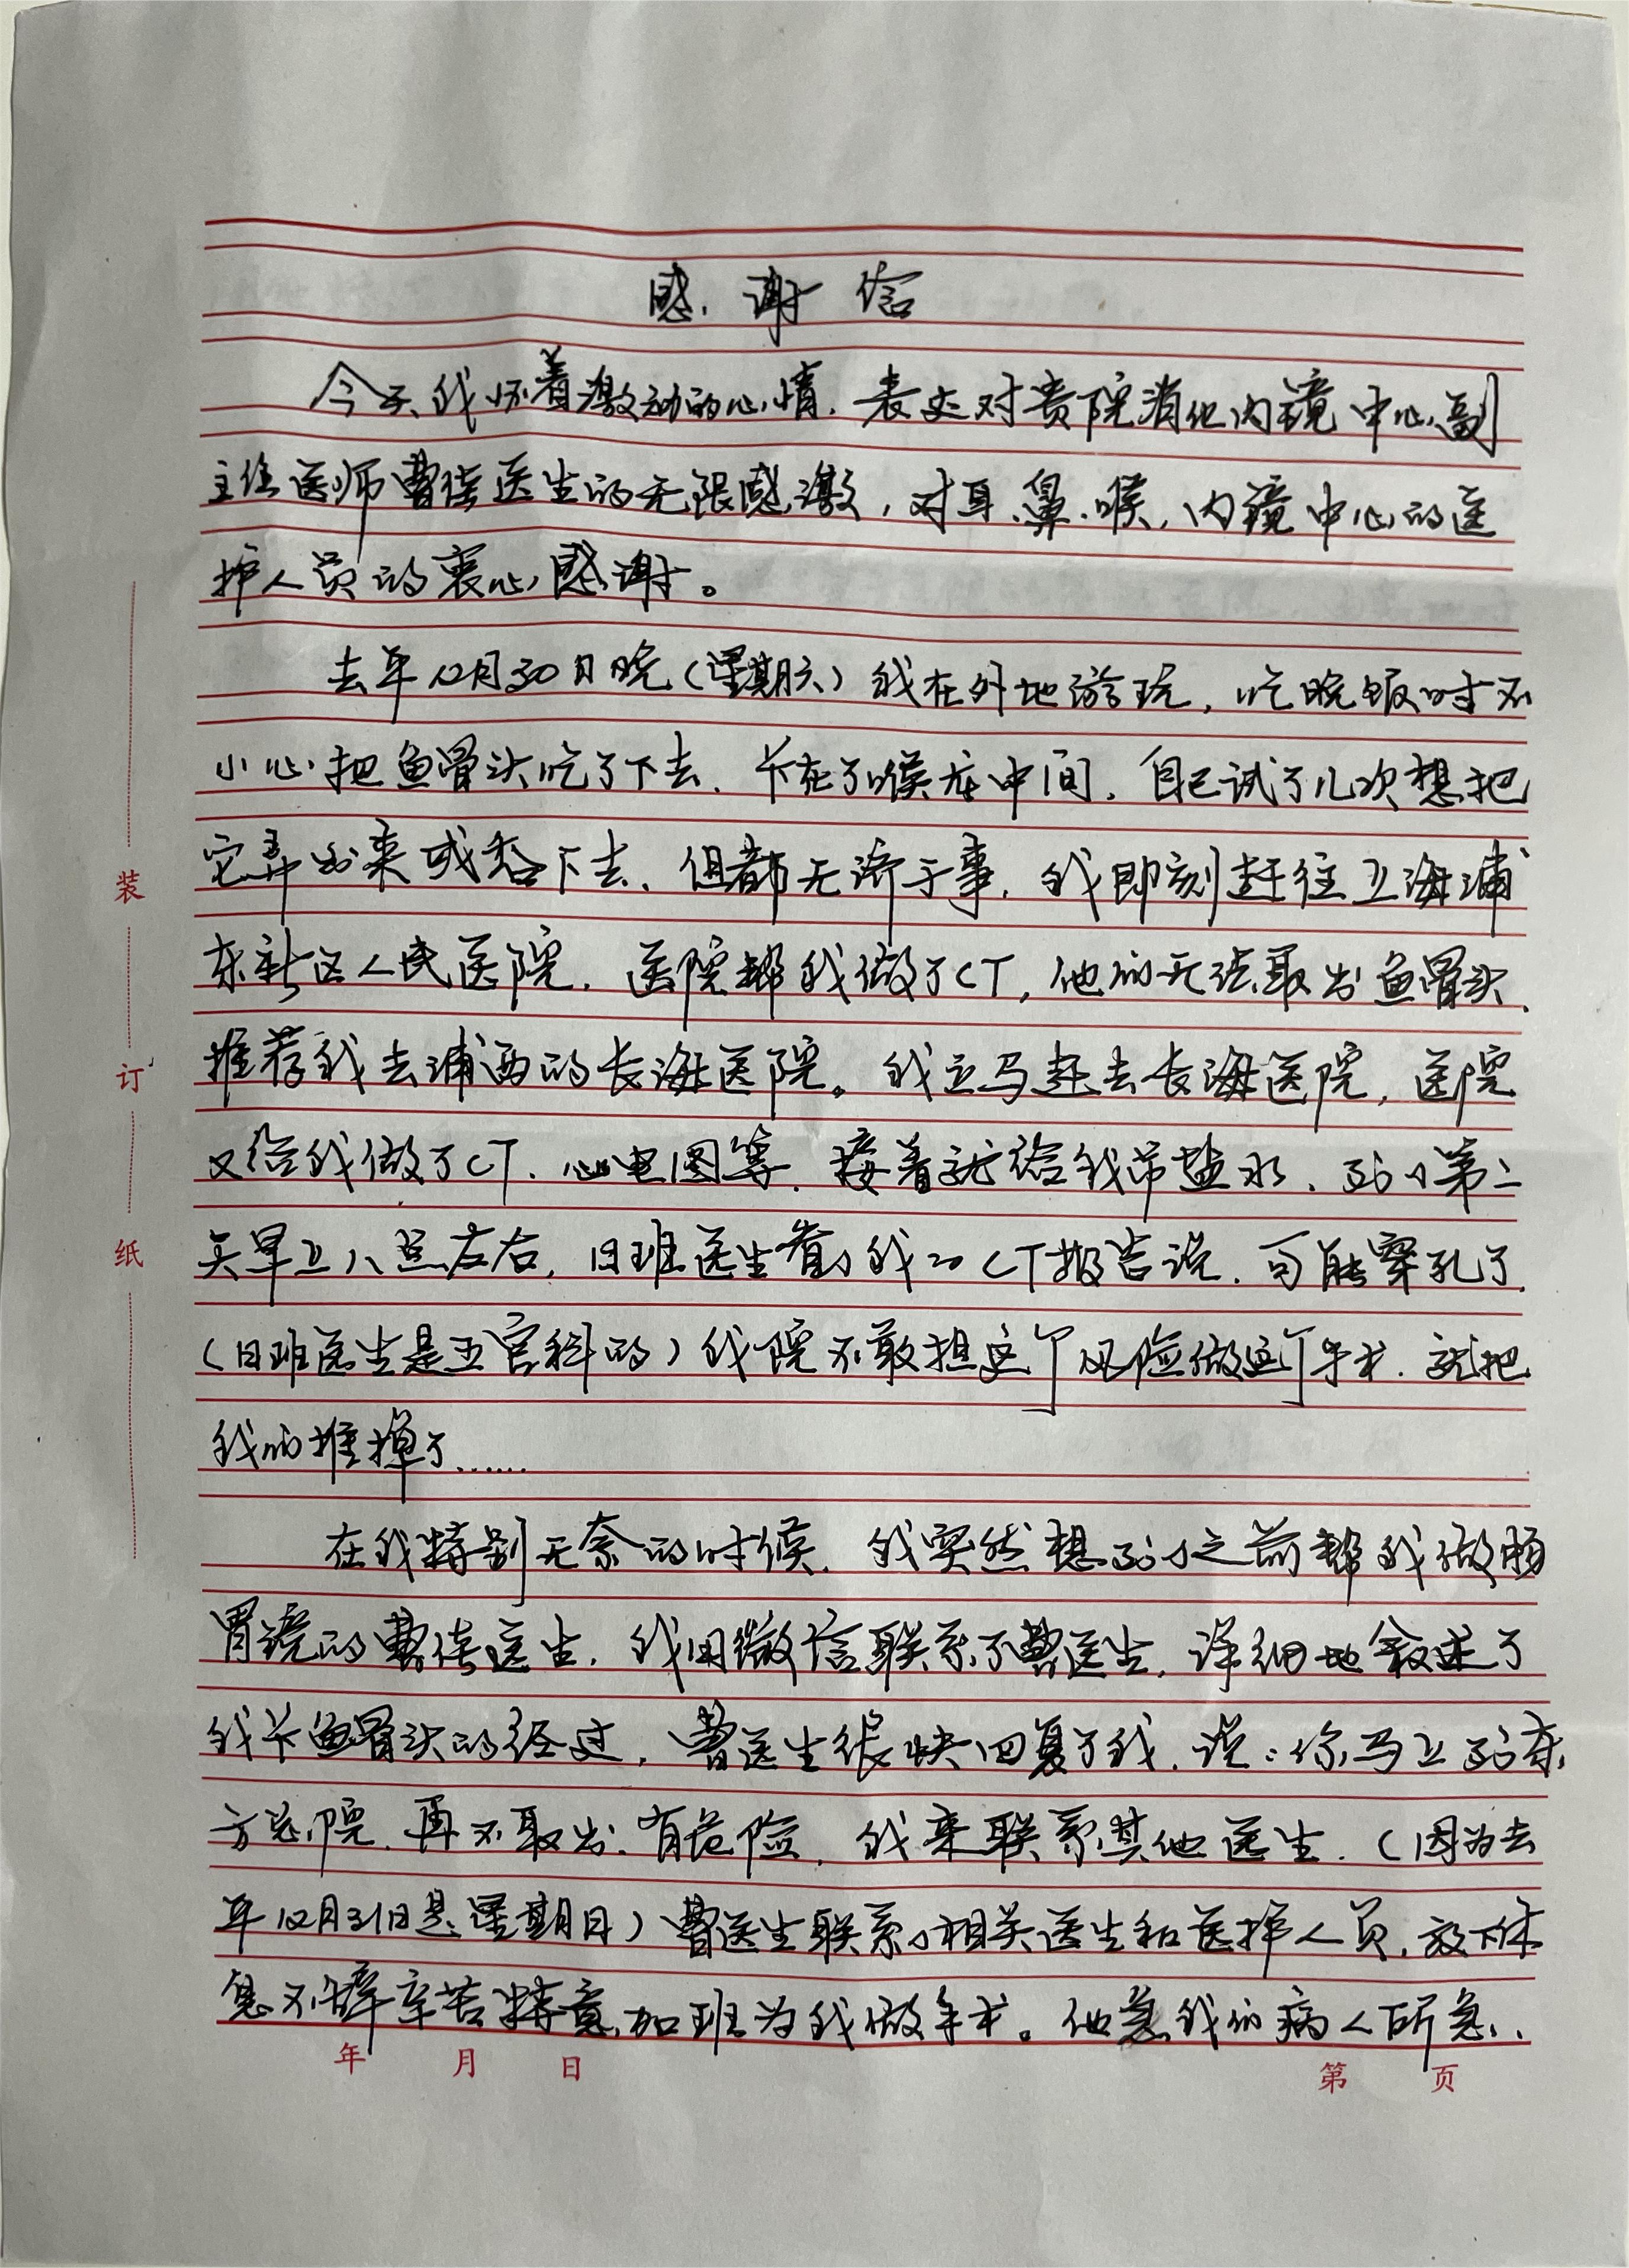 感谢信
今天我怀着激动的心情，表达对贵院消化内镜中心副
主任医师曹佳医生的无限感激，对耳、鼻、喉，内镜中心的医
护人员的衷心感谢。
去年12月30日晚（星期六）我在外地游玩，吃晚饭时不
小心把鱼骨头吃了下去、卡在了喉库中间，自己试了几次想把
它弄出来或吞下去、但都无济于事，我即刻赶往上海浦
东新区人民医院，医院帮我做了CT，他们无法取出鱼骨头，
推荐我去浦西的长海医院。我立马赶去长海医院，医院
又给我做了CT、心电图等，接着就给我吊盐水、到了第二
天早上八点左右，日班医生看了我的CT报告说，可能穿孔了
（日班医生是五官科的）我院不敢担这个风险做这个手术，就把
我们推掉了……
在我特别无奈的时候，我突然想到了之前帮我做肠
胃镜的曹佳医生，我用微信联系了曹医生，详细地叙述了
我卡鱼骨头的经过，曹医生很快回复了我，说：你马上到东
方总院，再不取出，有危险，我来联系其他医生，（因为去
年12月31日是星期日）曹医生联系了相关医生和医护人员，放下休
息不辞辛苦特意加班为我做手术。他急我们病人所急，
装
订
纸
年 月 日
第 页